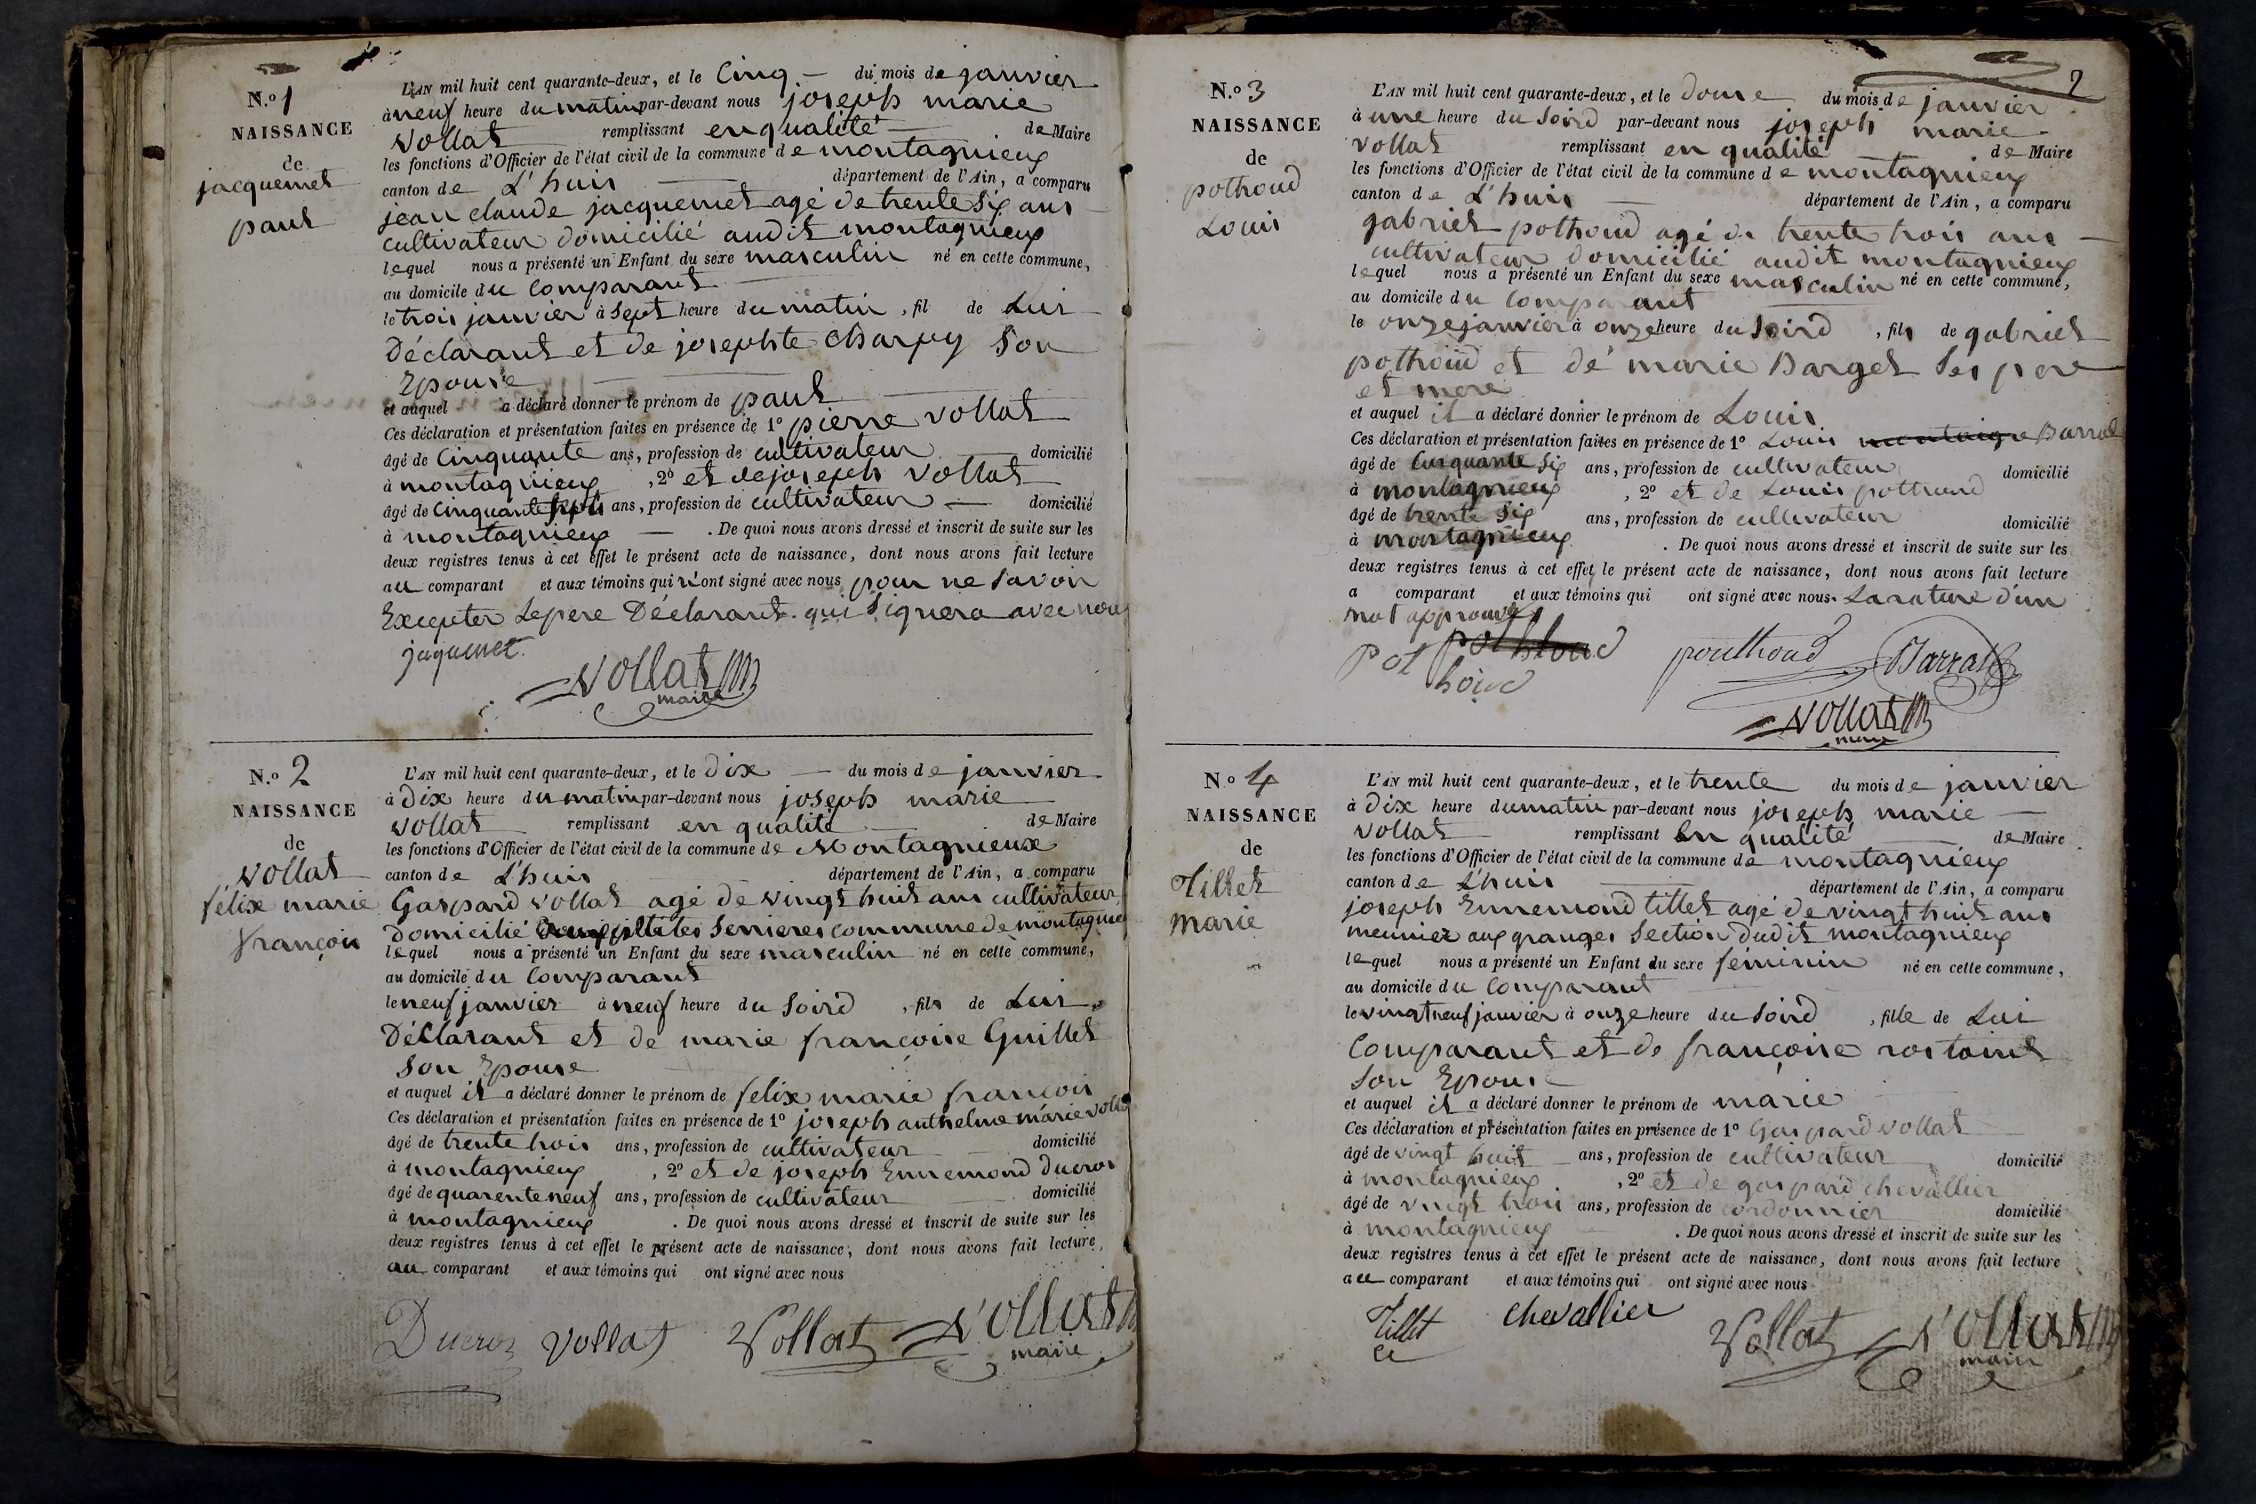 N.º 1
NAISSANCE
de
jacquemet
paul
L'AN mil huit cent quarante-deux, et le Cinq du mois de janvier
à neuf heure du matin par-devant nous joseph marie
Vollat remplissant en qualité de Maire
les fonctions d'Officier de l'état civil de la commune de montagnieux
canton de L'huis département de l'Ain, a comparu
jean claude jacquemet agé de trente six ans
cultivateur domicilié audit montagnieux
lequel nous a présenté un Enfant du sexe masculin né en cette commune,
au domicile du Comparant
le trois janvier à sept heure du matin, fil de Lui
Déclarant et de josephte Charpy Son
Epouse
et auquel a déclaré donner le prénom de paul
Ces déclaration et présentation faites en présence de 1º pierre Vollat
âgé de Cinquante ans, profession de cultivateur domicilié
à montagnieux, 2º et de joseph Vollat
âgé de Cinquante sept ans, profession de cultivateur domicilié
à montagnieux. De quoi nous avons dressé et inscrit de suite sur les
deux registres tenus à cet effet le présent acte de naissance, dont nous avons fait lecture
au comparant et aux témoins qui n'ont signé avec nous pour ne Savoir
Excepter Le pere Déclarant qui Signera avec nous
jaquemet
Vollat JM
maire
N.º 2
NAISSANCE
de
Vollat
félix marie
françois
L'AN mil huit cent quarante-deux, et le Dix du mois de janvier
à Dix heure du matin par-devant nous joseph marie
Vollat remplissant en qualité de Maire
les fonctions d'Officier de l'état civil de la commune de Montagnieux
canton de L'huis département de l'Ain, a comparu
Gaspard Vollat agé de vingt huit ans cultivateur
Domicilié Serrieres commune de montagnieu
lequel nous a présenté un Enfant du sexe masculin né en cette commune,
au domicile du Comparant
le neuf janvier à neuf heure du Soird, fils de Lui
Déclarant et de marie françoise Guillet
Son Epouse
et auquel il a déclaré donner le prénom de felix marie françois
Ces déclaration et présentation faites en présence de 1º joseph anthelme marie Vollat
âgé de trente trois ans, profession de cultivateur domicilié
à montagnieux, 2º et de joseph Ennemond Ducros
âgé de quarente neuf ans, profession de cultivateur domicilié
à montagnieux. De quoi nous avons dressé et inscrit de suite sur les
deux registres tenus à cet effet le présent acte de naissance, dont nous avons fait lecture,
au comparant et aux témoins qui ont signé avec nous
Ducros Vollat Vollat Vollat JM
maire
2
N.º 3
NAISSANCE
de
pothoud
Louis
L'AN mil huit cent quarante-deux, et le douze du mois de janvier
à une heure du Soird par-devant nous joseph marie
Vollat remplissant en qualité de Maire
les fonctions d'Officier de l'état civil de la commune de montagnieux
canton de L'huis département de l'Ain, a comparu
gabriel pothoud agé de trente trois ans
cultivateur domicilié audit montagnieux
lequel nous a présenté un Enfant du sexe masculin né en cette commune,
au domicile du Comparant
le onze janvier à onze heure du Soird, fils de gabriel
pothoud et de marie Barget Ses pere
et mere
et auquel il a déclaré donner le prénom de Louis
Ces déclaration et présentation faites en présence de 1º Louis montaigne Barral
âgé de Cinquante Six ans, profession de cultivateur domicilié
à montagnieux, 2º et de Louis pothoud
âgé de trente Six ans, profession de cultivateur domicilié
à montagnieux. De quoi nous avons dressé et inscrit de suite sur les
deux registres tenus à cet effet le présent acte de naissance, dont nous avons fait lecture
a comparant et aux témoins qui ont signé avec nous. La rature d'un
mot approuvé
pot houd pouthoud Barral
Vollat JM
maire
N.º 4
NAISSANCE
de
Tillet
Marie
L'AN mil huit cent quarante-deux, et le trente du mois de janvier
à Dix heure du matin par-devant nous joseph marie
Vollat remplissant En qualité de Maire
les fonctions d'Officier de l'état civil de la commune de montagnieux
canton de L'huis département de l'Ain, a comparu
joseph Ennemond tillet agé de vingt huit ans
meunier aux granges Section dudit montagnieux
lequel nous a présenté un Enfant du sexe féminin né en cette commune,
au domicile du Comparant
le vingt neuf janvier à onze heure du Soird, fille de Lui
Comparant et de françoise rostaint
Son Epouse
et auquel il a déclaré donner le prénom de marie
Ces déclaration et présentation faites en présence de 1º Gaspard Vollat
âgé de vingt huit ans, profession de cultivateur domicilié
à montagnieux, 2º et de gaspard chevallier
âgé de vingt trois ans, profession de cordonnier domicilié
à montagnieux. De quoi nous avons dressé et inscrit de suite sur les
deux registres tenus à cet effet le présent acte de naissance, dont nous avons fait lecture
au comparant et aux témoins qui ont signé avec nous
Tillet chevallier Vollat Vollat JM
maire